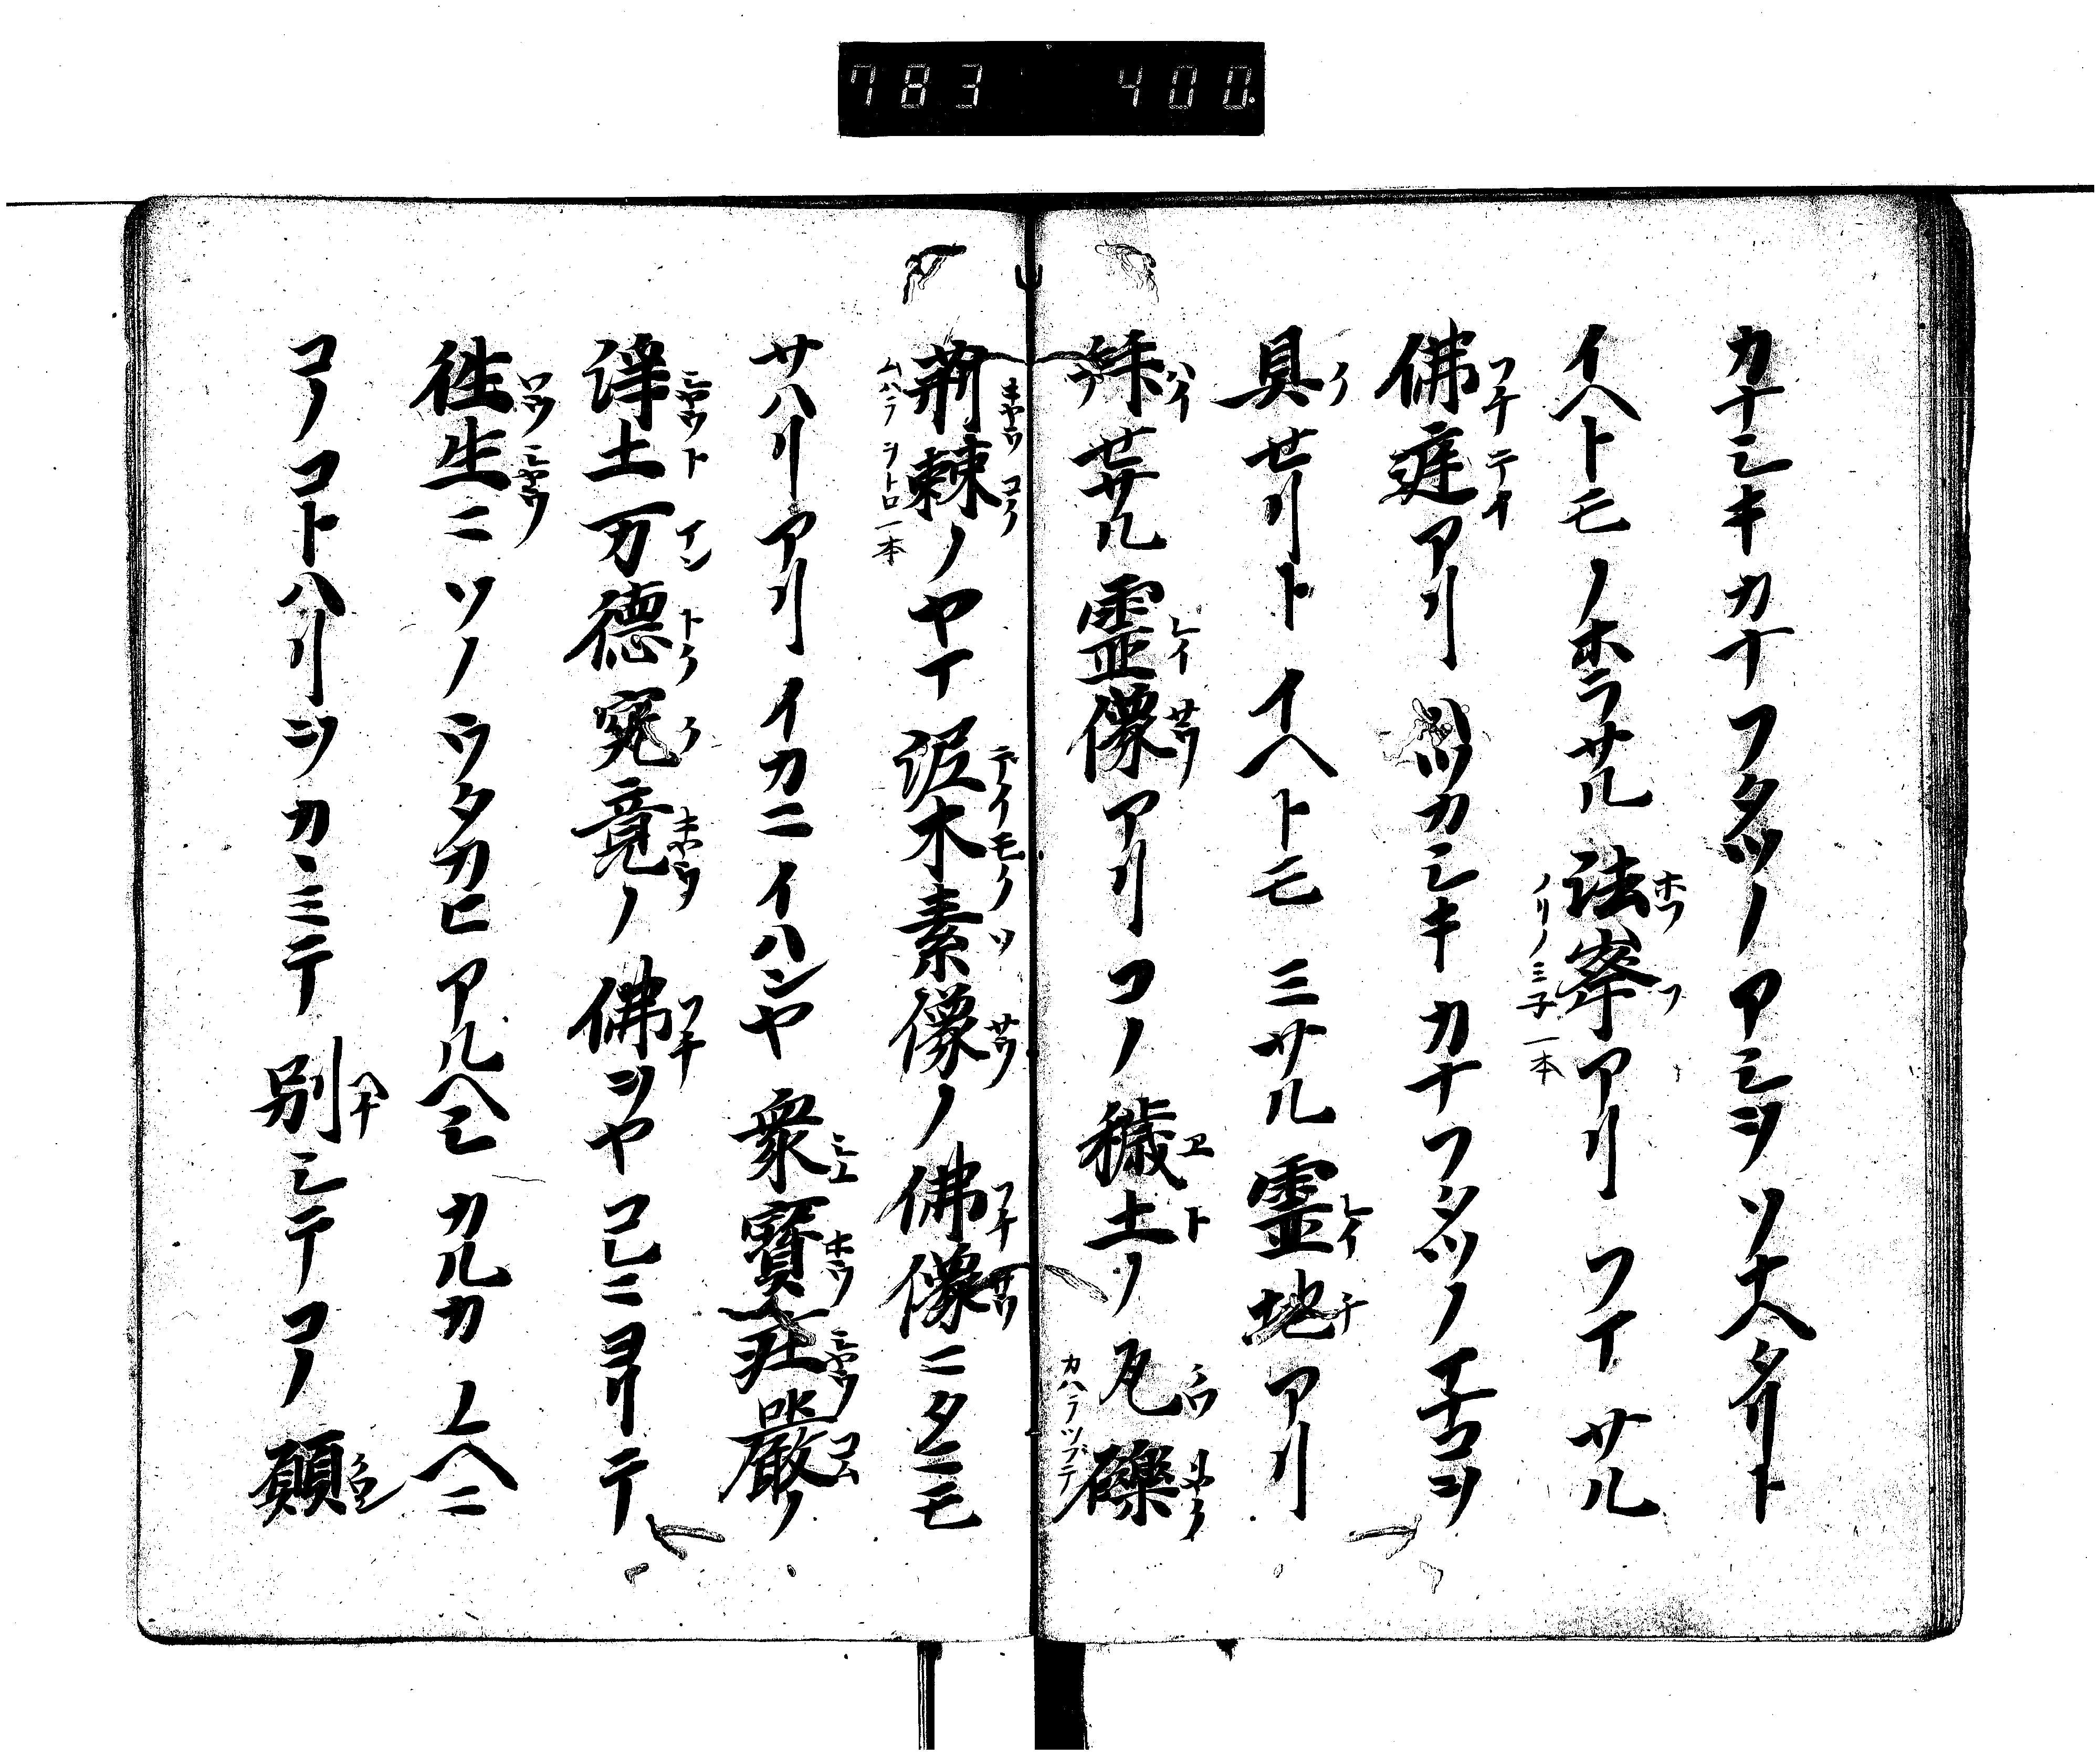 783 400
カナシキカナフタツノアシヲソナヘタリト
イヘトモノホラサル法峯アリフマサル
佛庭アリハツカシキカナフタツノマナコヲ
具セリトイヘトモミサル霊地アリ
拝セサル霊像アリコノ穢土ノ瓦礫
荊棘ノヤマ泥木素像ノ佛像ニタニモ
サハリアリイカニイハンヤ衆寶荘嚴ノ
浄土万德究竟ノ佛ヲヤコレニヨリテ
徃生ニソノウタカヒアルヘシカルカユヘニ
コノコトハリヲカヽミテ別シテコノ願